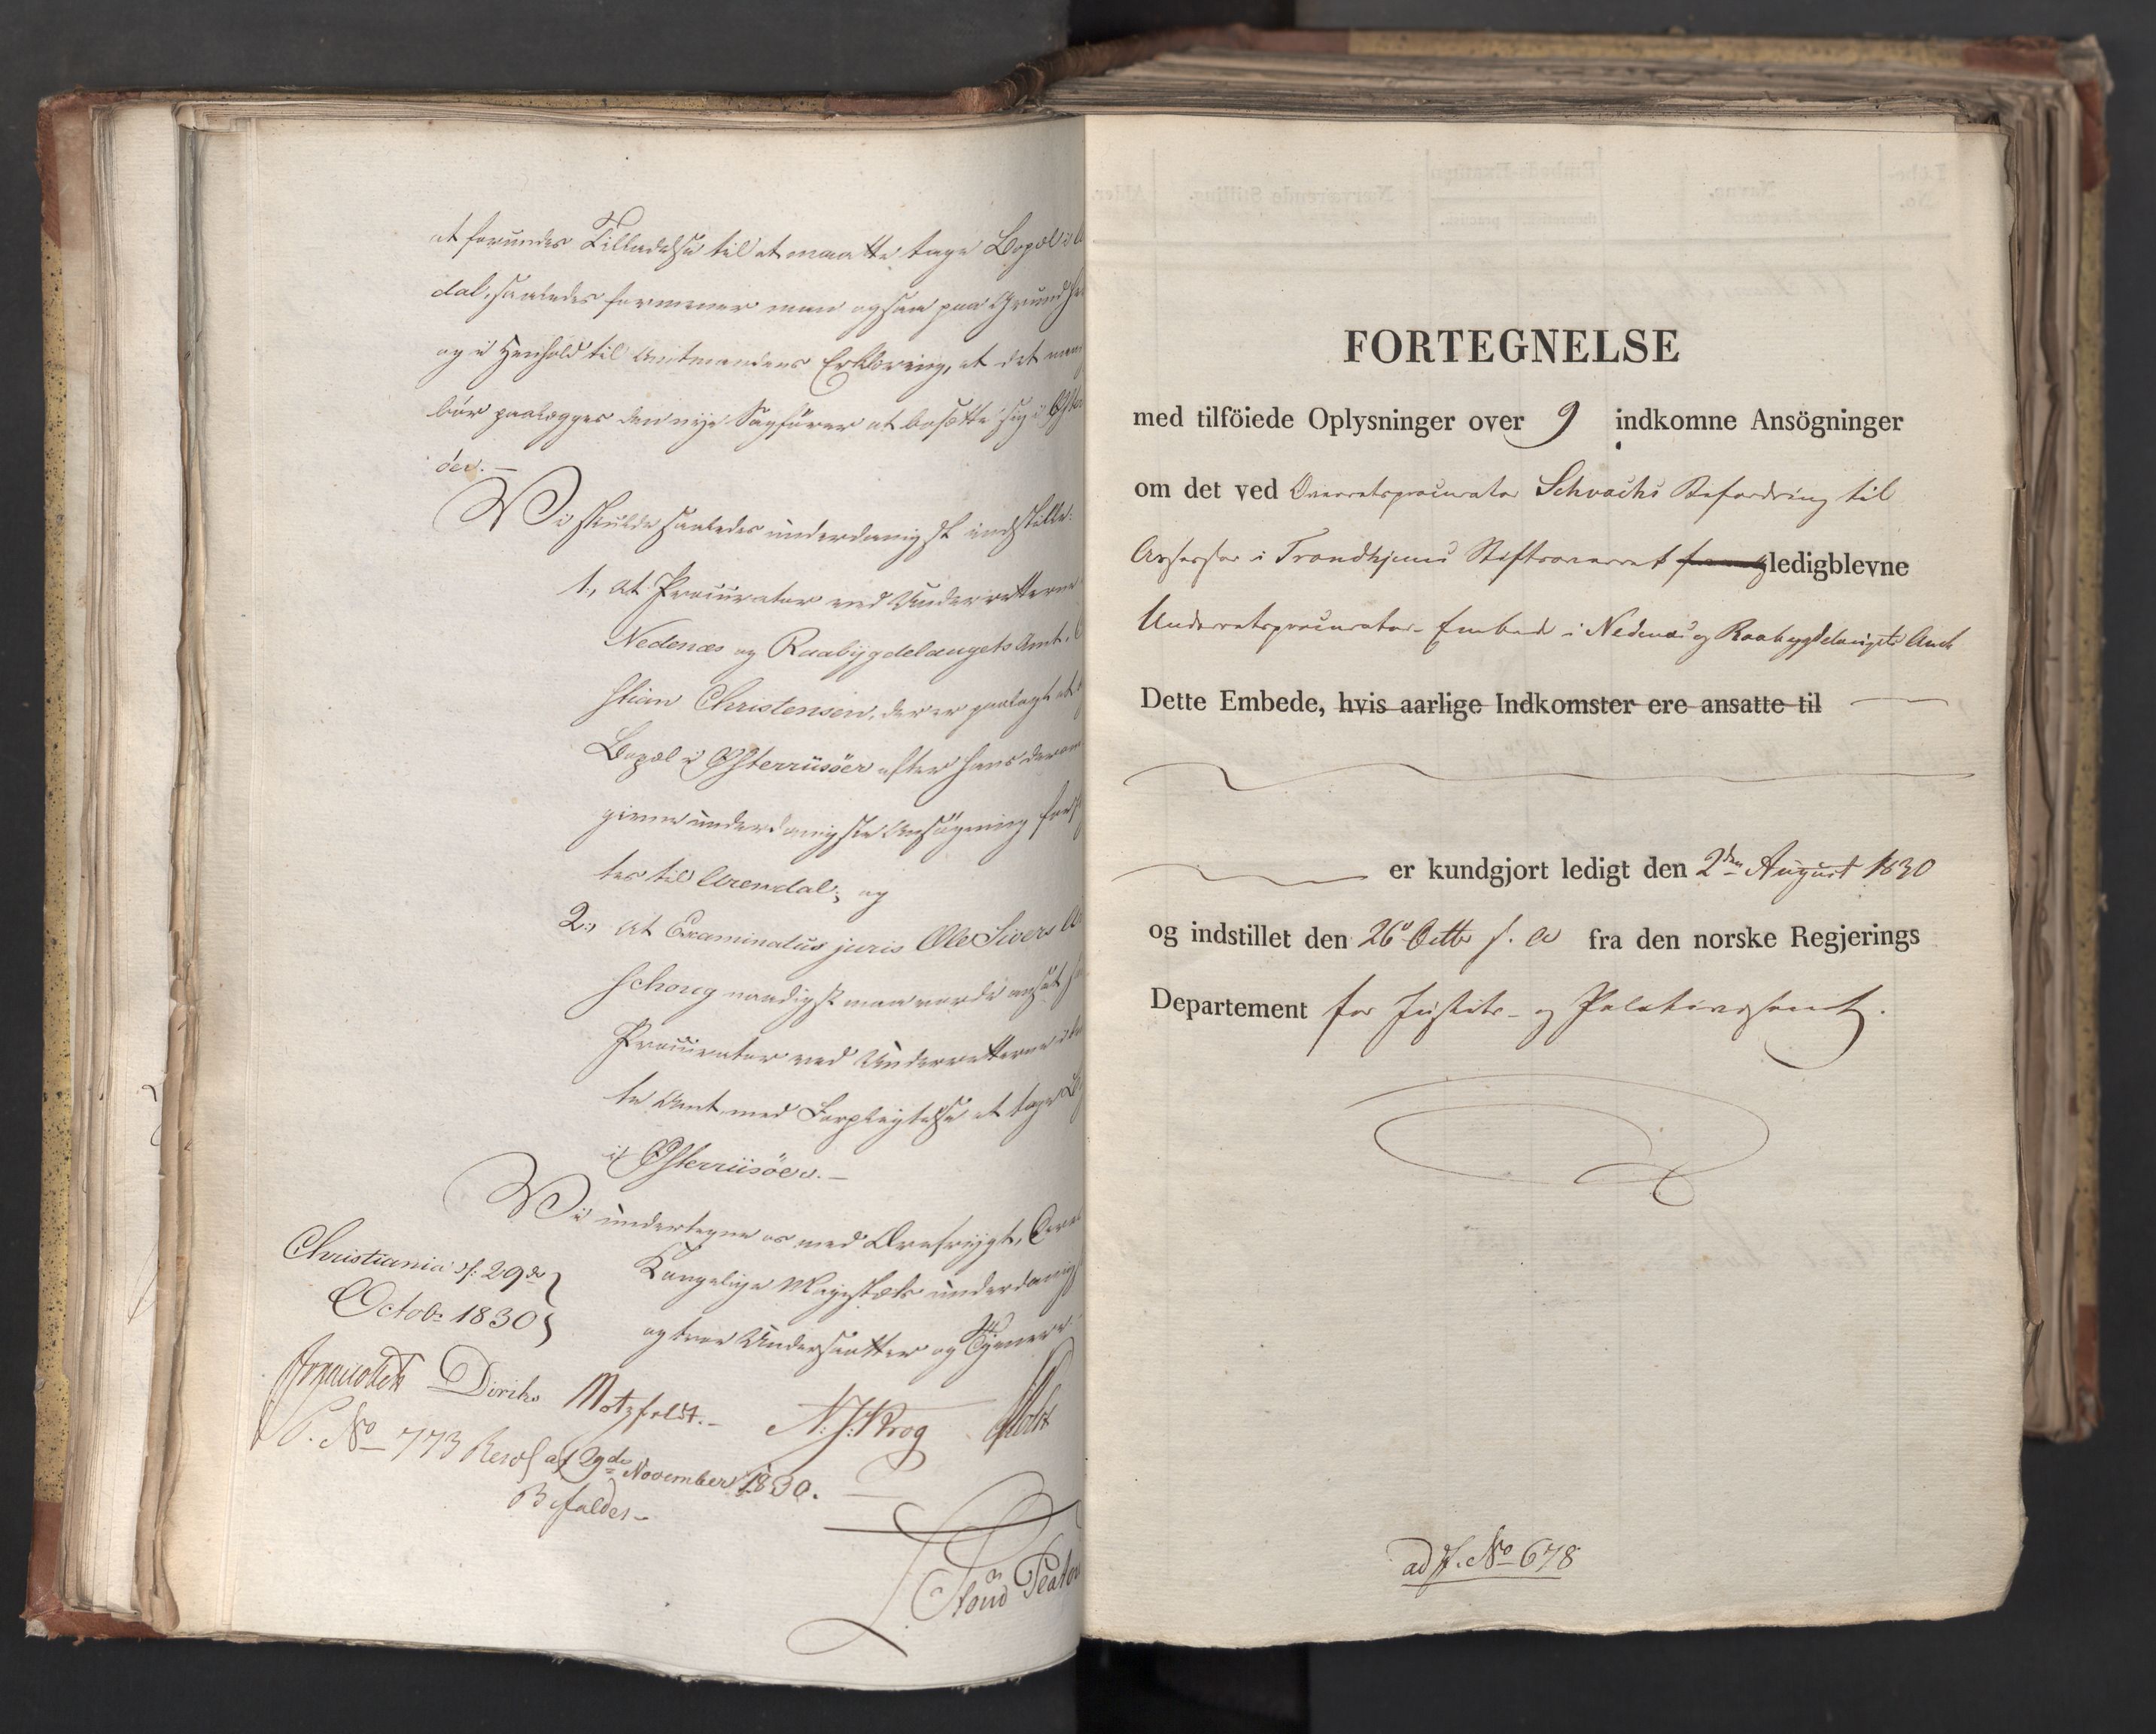 at forundes Tilladelse til at maatte tage Bopæl i
dal, saaledes formener man ogsaa paa Grund
og i Henhold til Amtmandens Erklæring, at det
bör paalægges den nye Sagförer at bosætte sig i
öer. —
Vi skulde saaledes underdanigst indstille:
1, at Procurator ved Underretterne
Nedenæs og Raabygdelaugets Amt,
stian Christensen, der er paalagt at
Bopæl i Østerriisöer efter hans derom
givne underdanigste Ansögning
tes til Arendal; og
2, at Examinatus juris Ole Sivers
schoug naadigst maa vorde ansat
Procurator ved Underretterne i
te Amt med Forpligtelse at tage
i Østerriisöer. —
Vi undertegne os med Ærefrygt,
Kongelige Majestæts
og troe Undersaatter og Tjenere
Christiania d: 29de
Octob: 1830
Diriks Motzfeldt. — N. J. Krog
P. No 773 Resol af 29de November 1830.
Bifaldes —
FORTEGNELSE
med tilföiede Oplysninger over 9 indkomne Ansögninger
om det ved Overretsprocurator Schwachs Befordring til
Assessor i Trondhjems Stiftsoverret ledigblevne
Underretsprocurator-Embede i Nedenæs og Raabygdelaugets Amt
Dette Embede, hvis aarlige Indkomster ere ansatte til
er kundgjort ledigt den 2den August 1830
og indstillet den 26 Octbr s. A fra den norske Regjerings
Departement for Justits- og Politievæsenet.
ad J. No 678